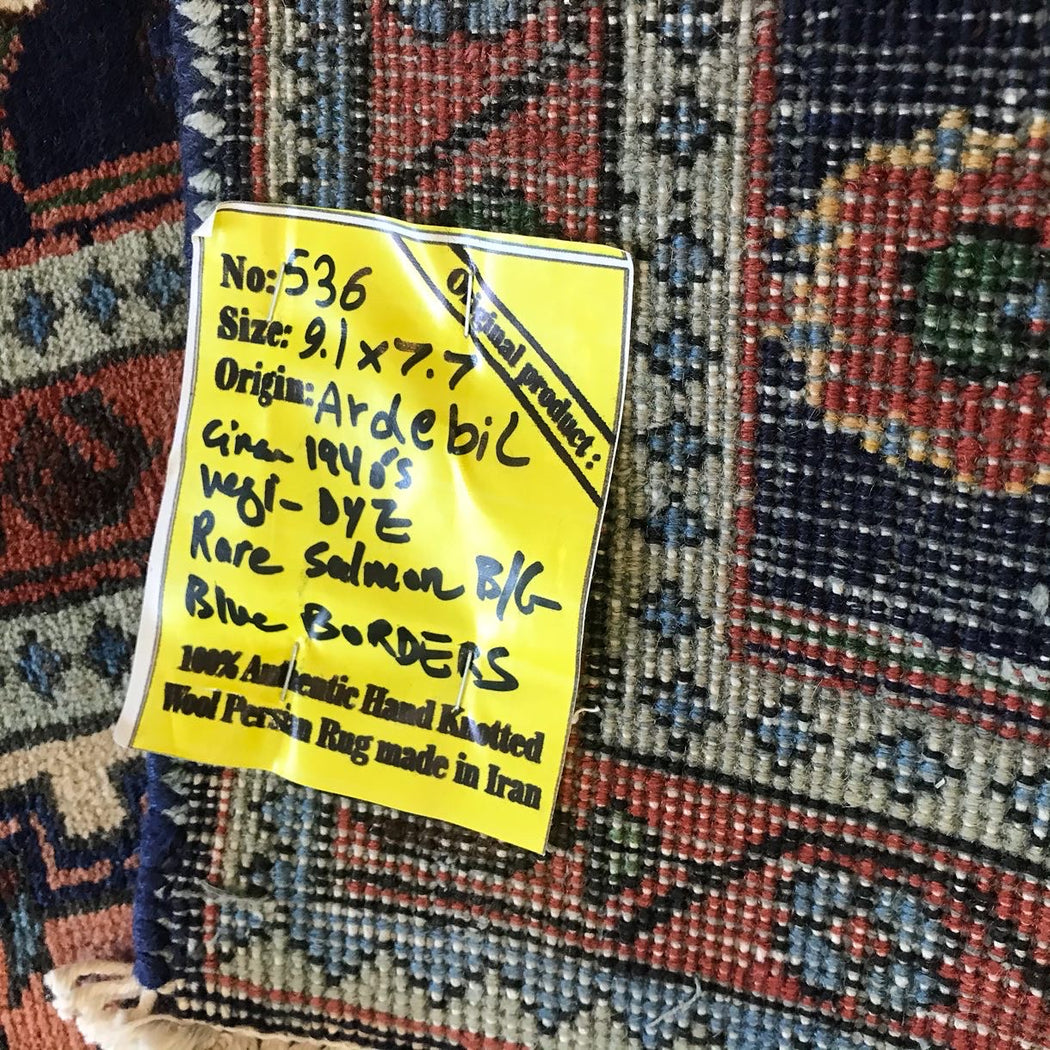 No: 536
Size: 9.1 x 7.7
Original product:
Origin: Ardebil
Circa 1940's
Vegi-DYE
Rare Salmon B/G
Blue BORDERS
100% Authentic Hand Knotted
Wool Persian Rug made in Iran